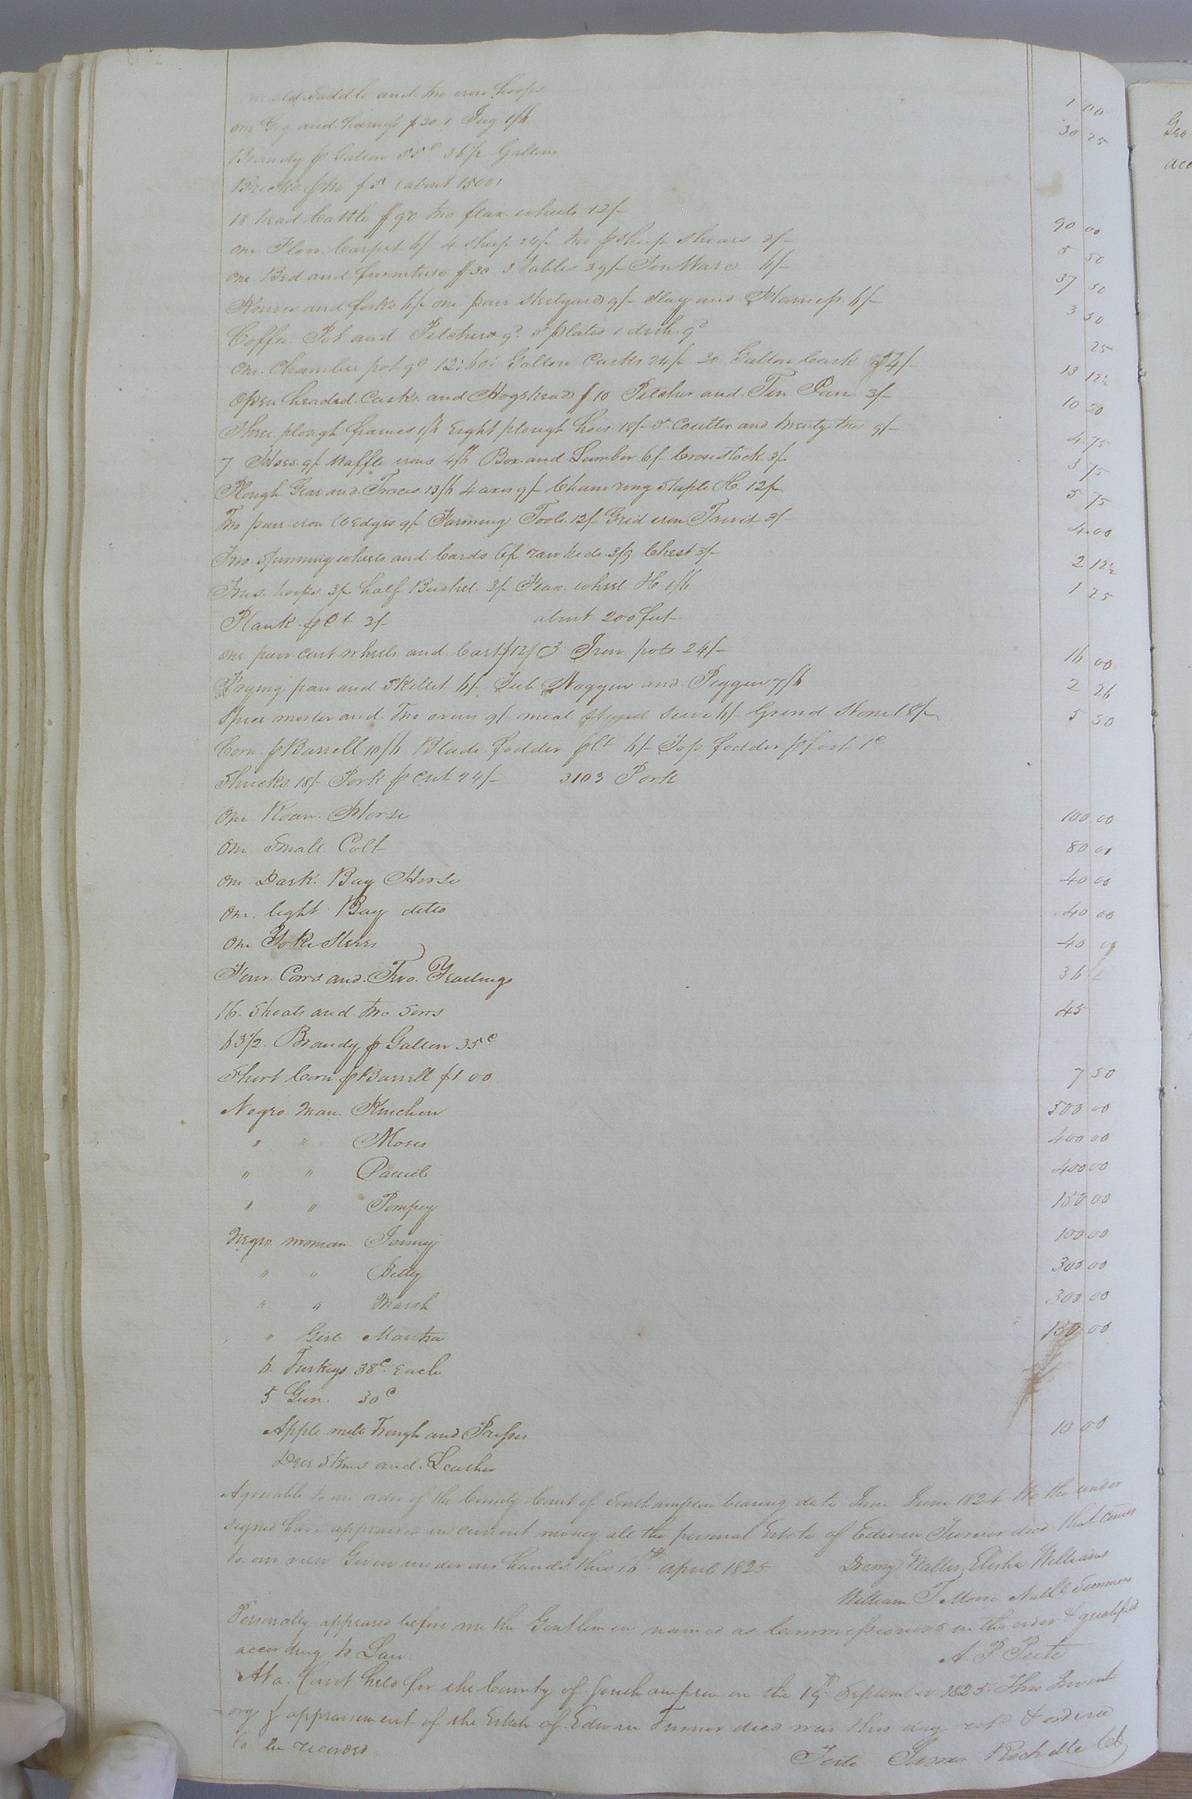 one old Saddle and two iron hoops 1 00
one Gig and harness $30 1 Jug 1/6 30 25
Brandy p Gallon 35c 36 1/2 Gallons
Bricks p M $5 about 1500
18 head Cattle $90 two flax wheels 12/- 90 00
one Floor Carpet 6/- 4 Sheep 24/- two p Sheep Shears 3/- 5 50
one Bed and furniture $30 3 Tables 39/- Tin Ware 6/- 37 50
Knives and forks 6/- one pair Steelyards 9/- Slay and Harness 6/- 3 50
Coffee Pot and Pitchers 9d 5 plates 1 dish 9d 25
one Chamber pot 9d 12 60 Gallon Casks 24/- 20 Gallon Cask 4/- 13 12 1/2
Open headed Casks and Hogsheads $10 Pitcher and Tin Pan 3/- 10 50
Three plough frames 1/6 Eight plough hoes 18/- 5 Coulters and twenty two 9/- 4 75
7 Hoes 9/- Waffle irons 4/6 Box and Lumber 6/- Cross stock 3/- 3 75
Plough Gear and Traces 13/6 4 axes 9/- Chain ring Staple &c 12/- 5 75
Two pair iron Wedges 9/- Farming Tools 12/- Grid iron Trivit 3/- 4 00
Two Spinning wheels and Cards 6/- raw hide 3/9 Chest 3/- 2 12 1/2
Iron hoops 3/- half Bushel 3/- Flax wheel &c 1/6 1 25
Plank p Ct 3/- about 200 feet
one pair Cart wheels and Cart $12 3 Iron pots 24/- 16 00
Frying pan and Skillet 6/- Tub Noggin and Piggin 7/6 2 26
Spice morter and Two ovens 9/- meal Sieve 6/- Grind Stone 18/- 5 50
Corn p Barrell 10/6 Blade Fodder p Ct 6/- Top fodder p foot 1c
Shucks 18/- Pork p Cwt 24/- 3103 Pork
One Roan Horse 100 00
One Small Colt 80 00
One Dark Bay Horse 40 00
One light Bay ditto 40 00
One Yoke Steers 40 00
Four Cows and Two Yearlings 36
16 Shoats and two Sows 45
63 1/2 Brandy p Gallon 35c
Short Corn p Barrell $1 00 7 50
Negro Man Kinchen 500 00
" " Moses 400 00
" " Daniel 400 00
" " Pompey 150 00
Negro woman Jenny 100 00
" " Betty 300 00
" " Mariah 300 00
" Girl Martha 150 00
6 Turkeys 38c Each
5 Geese 30c
Apple mill Trough and Presses 10 00
Deer Skins and Leather
Agreeable to an order of the County Court of Southampton bearing date June 1824 We the under
signed have appraised in current money all the personal Estate of Edwin Turner decd that came
to our view Given under our hands this 16th april 1825 Drewry Waller, Elisha Williams
William T Moore Nathl Simmons
Personally appeared before me the Gentlemen named as Commissioners in the order & qualified
according to Law A. P. Peete
At a Court held for the County of Southampton on the 19th September 1825 This Invent
ory & appraisement of the Estate of Edwin Turner decd was this day retd & ordered
to be recorded
Teste James Rochelle Clk